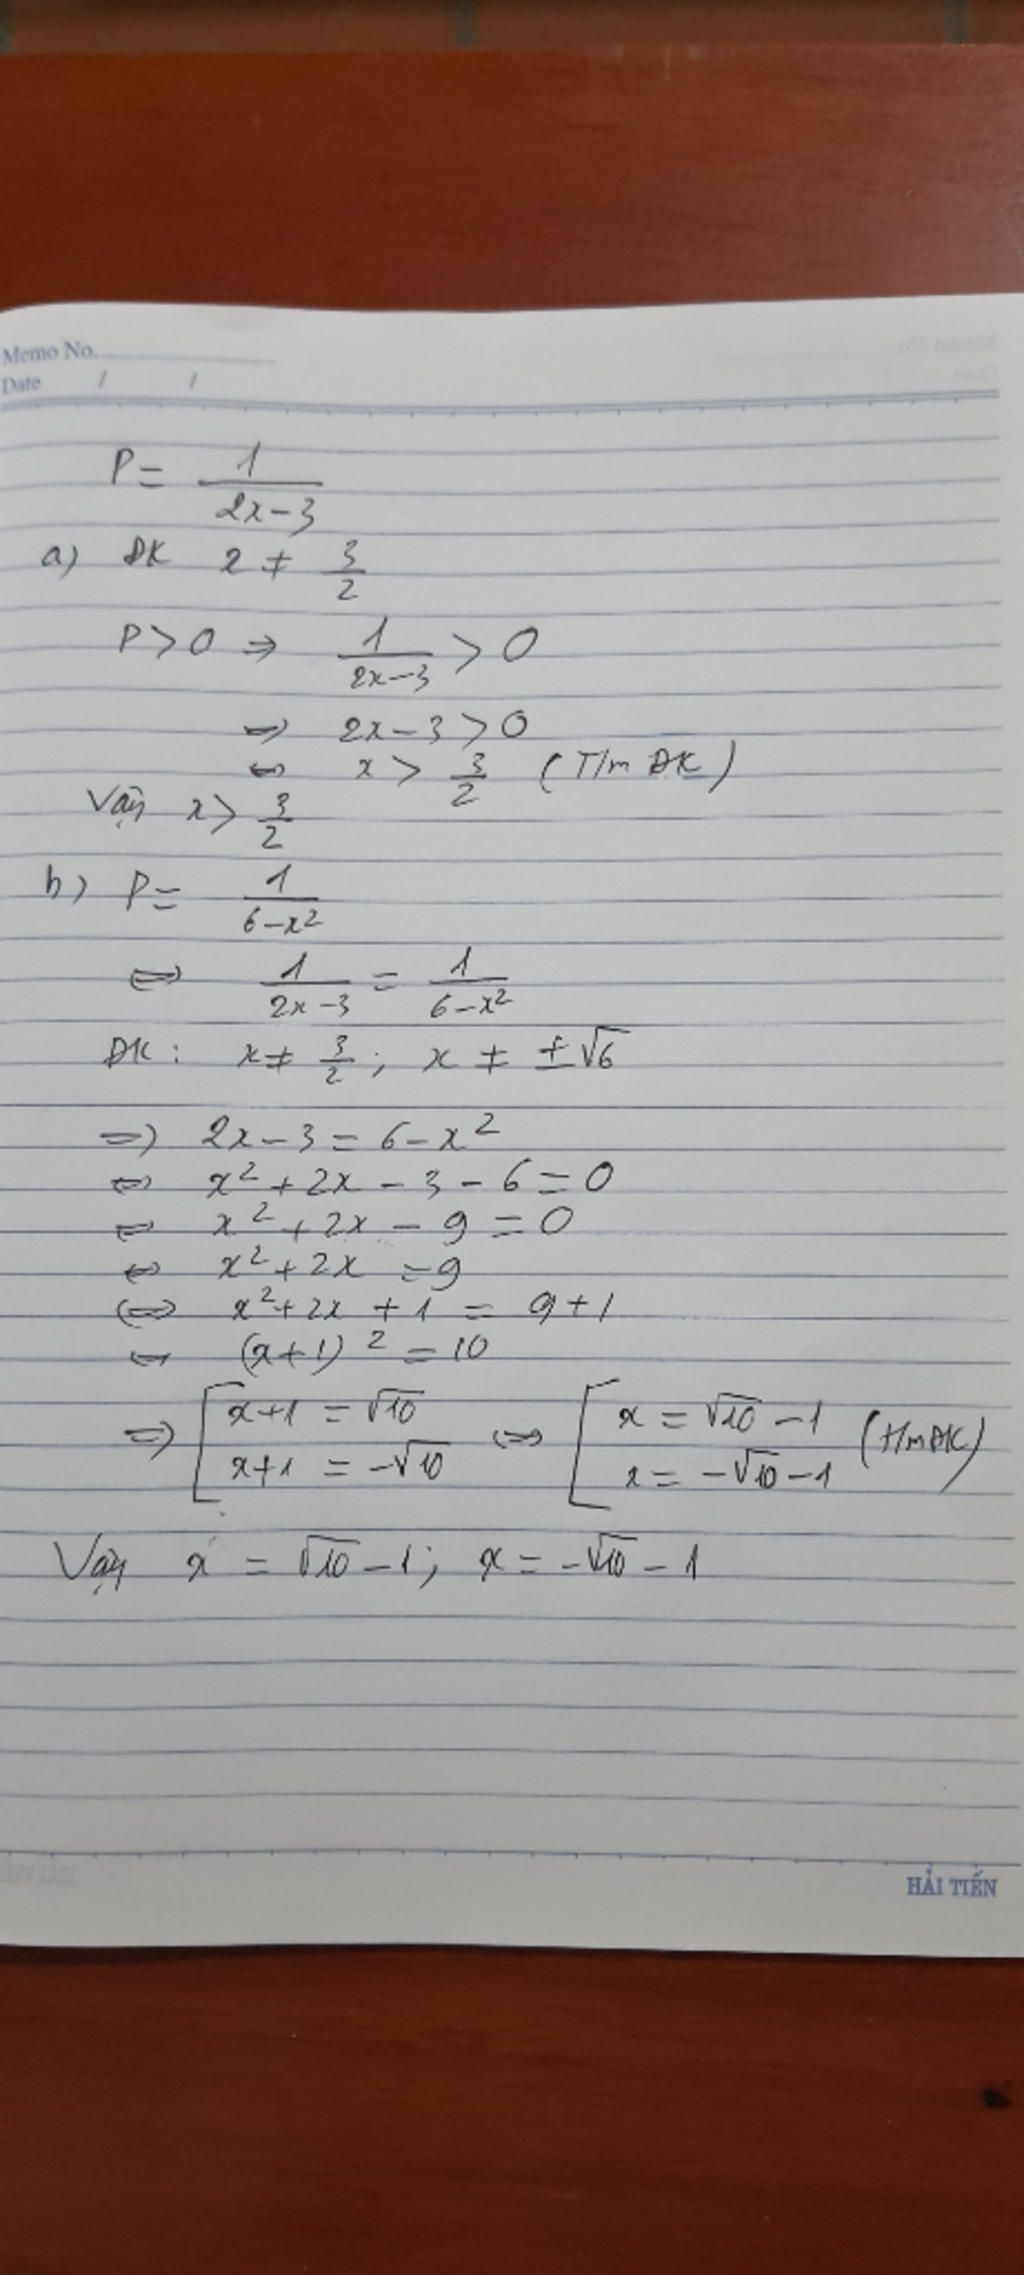 Memo No.
Date / /
P = 1/(2x-3)
a) ĐK x ≠ 3/2
P > 0 => 1/(2x-3) > 0
=> 2x - 3 > 0
<=> x > 3/2 (T/m ĐK)
Vậy x > 3/2
b) P = 1/(6-x²)
<=> 1/(2x-3) = 1/(6-x²)
ĐK: x ≠ 3/2; x ≠ ±√6
=> 2x - 3 = 6 - x²
<=> x² + 2x - 3 - 6 = 0
<=> x² + 2x - 9 = 0
<=> x² + 2x = 9
<=> x² + 2x + 1 = 9 + 1
<=> (x+1)² = 10
=> [ x+1 = √10 <=> [ x = √10 - 1 (t/m ĐK)
x+1 = -√10 x = -√10 - 1
Vậy x = √10 - 1; x = -√10 - 1
HẢI TIẾN